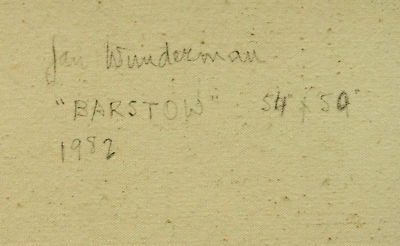 Jan Wunderman
"BARSTOW" 54" x 50"
1982